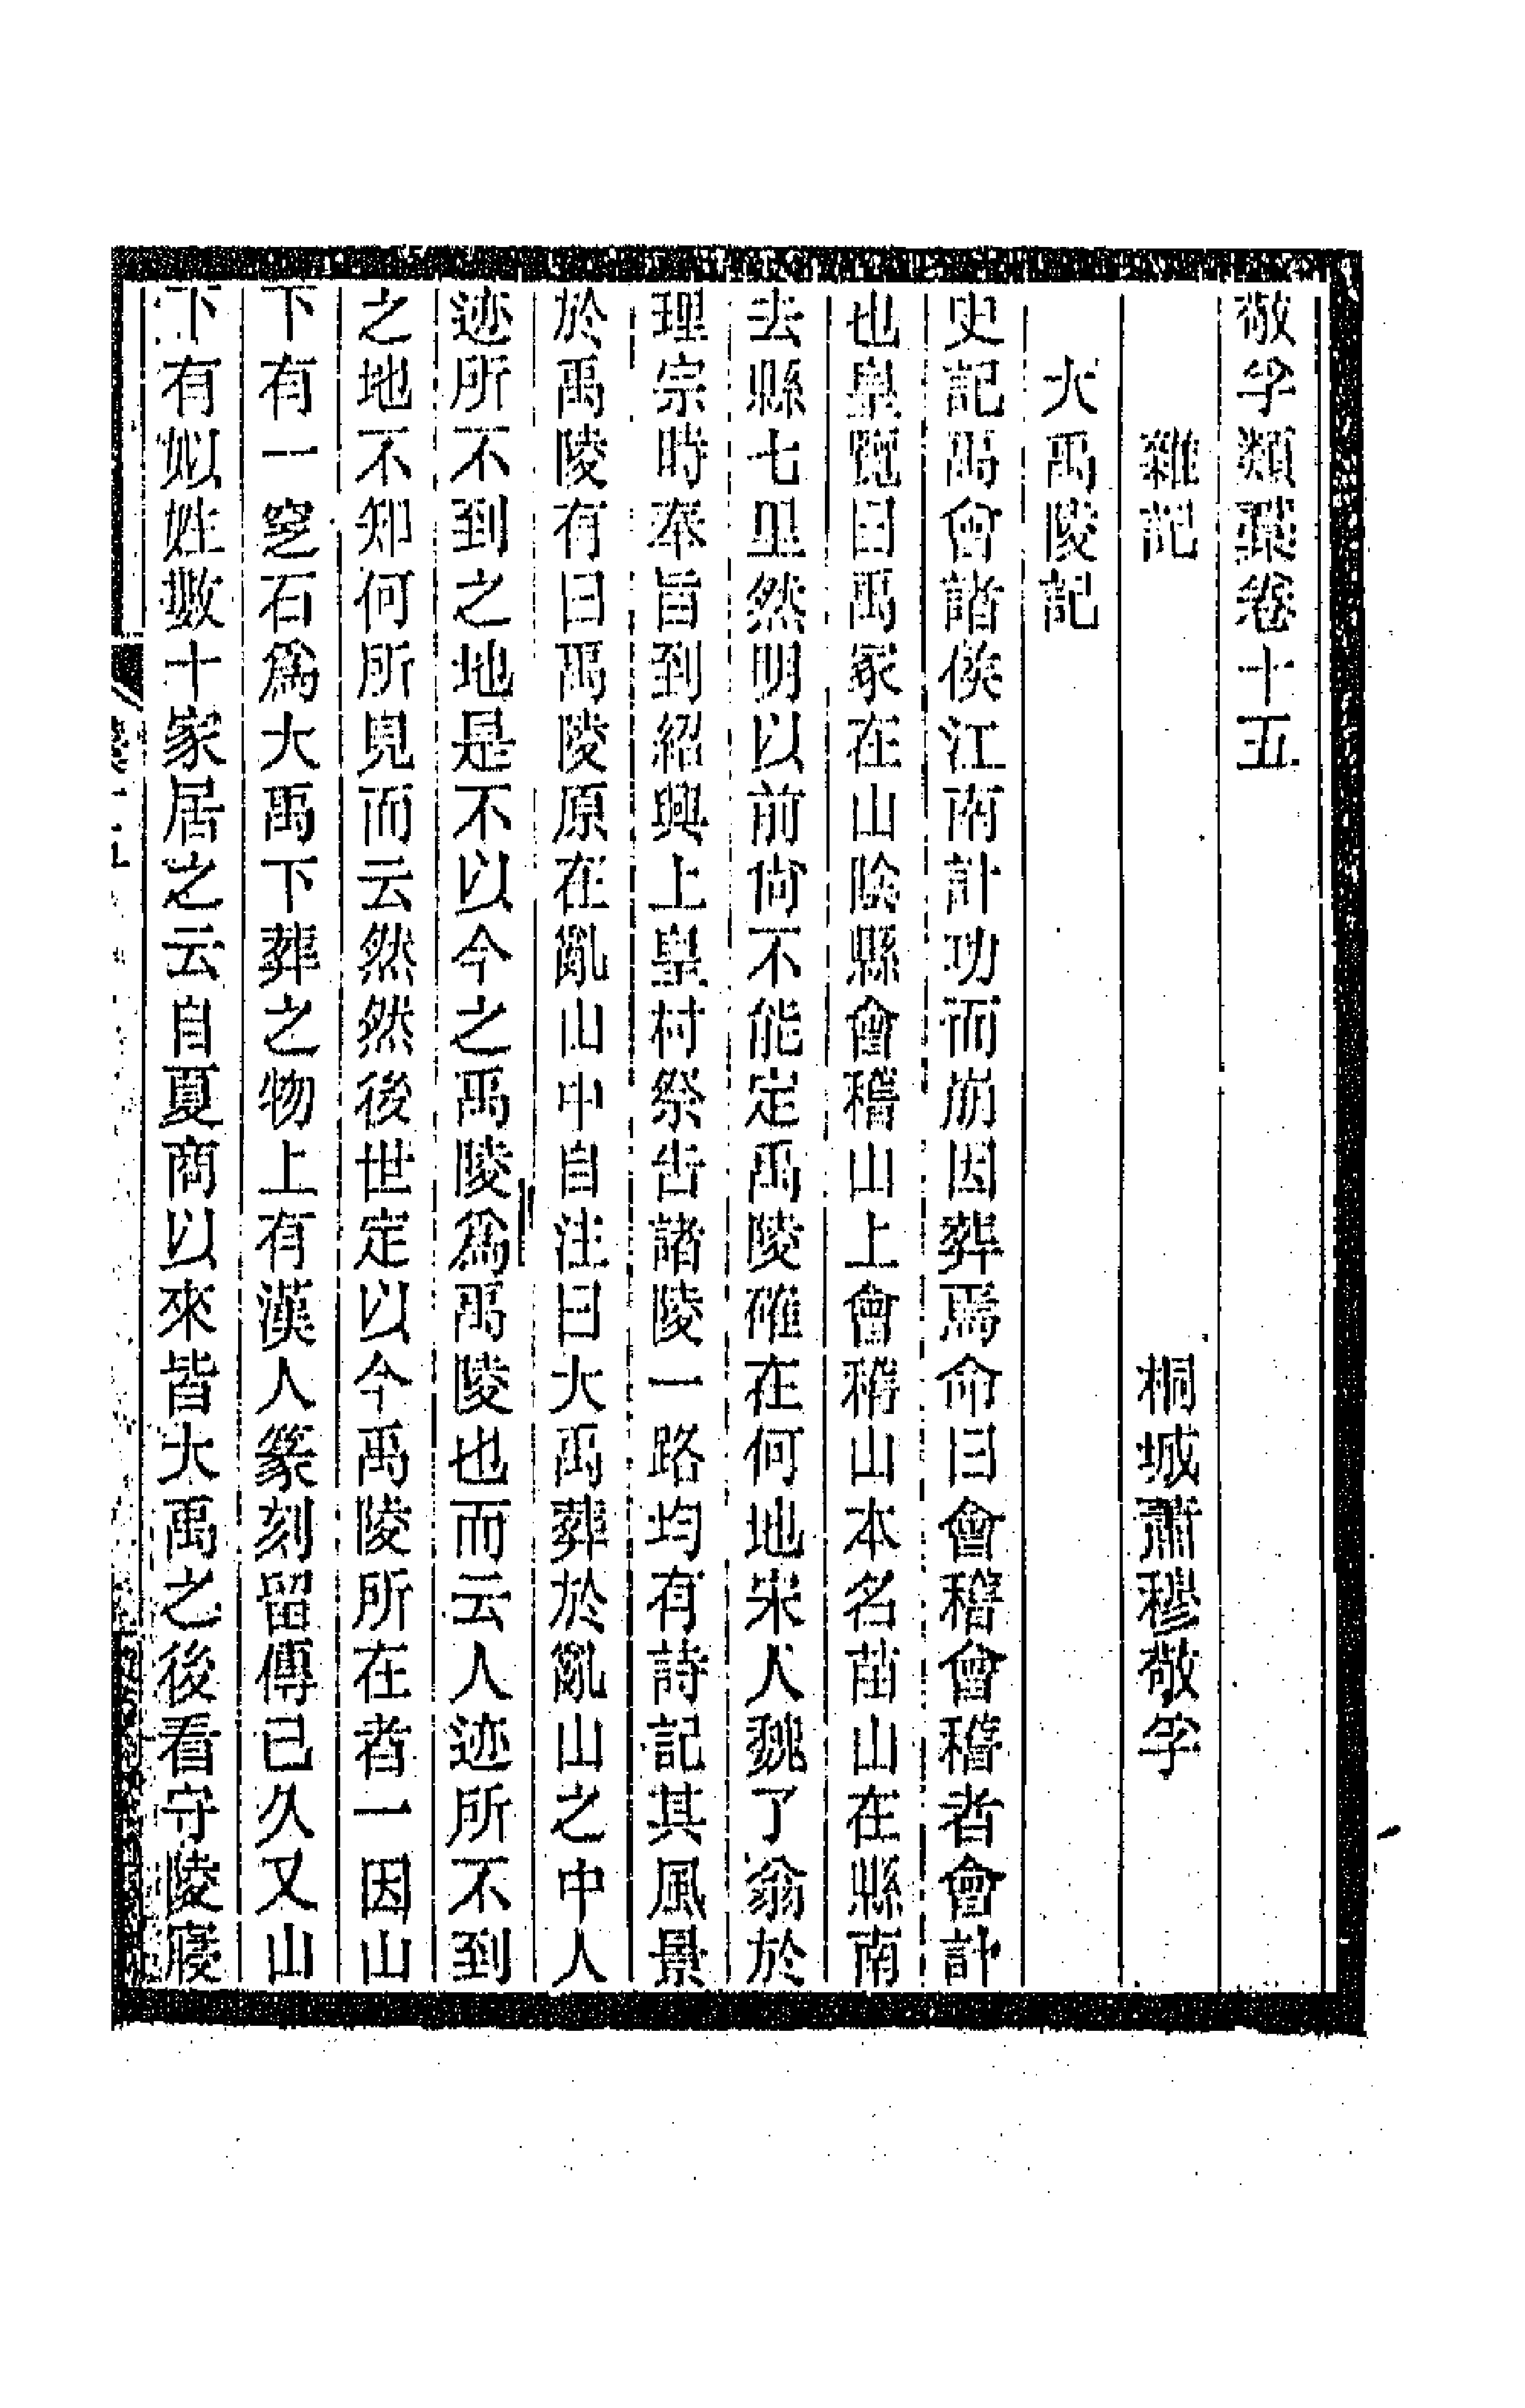 敬孚類稾卷十五
雜記　桐城蕭穆敬孚
大禹陵記
史記禹會諸侯江南計功而崩因葬焉命曰會稽會稽者會計
也皇覽曰禹冢在山陰縣會稽山上會稽山本名苗山在縣南
去縣七里然明以前尙不能定禹陵確在何地宋人魏了翁於
理宗時奉旨到紹興上皇村祭告諸陵一路均有詩記其風景
於禹陵有曰禹陵原在亂山中自注曰大禹葬於亂山之中人
迹所不到之地是不以今之禹陵爲禹陵也而云人迹所不到
之地不知何所見而云然然後世定以今禹陵所在者一因山
下有一窆石爲大禹下葬之物上有漢人篆刻留傳已久又山
下有姒姓數十家居之云自夏商以來皆大禹之後看守陵寢